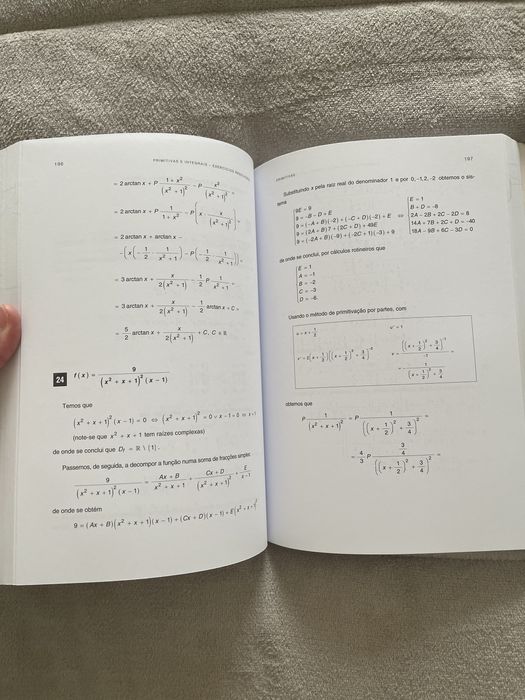 196
PRIMITIVAS E INTEGRAIS - EXERCÍCIOS
= 2 arctan x + P (1 + x²)/(x² + 1)² - P x²/(x² + 1)² =
= 2 arctan x + P 1/(1 + x²) - P (x · x/(x² + 1)²) =
= 2 arctan x + arctan x -
- (x(-1/2 · 1/(x² + 1)) - P(-1/2 · 1/(x² + 1))) =
= 3 arctan x + x/(2(x² + 1)) - 1/2 P 1/(x² + 1) =
= 3 arctan x + x/(2(x² + 1)) - 1/2 arctan x + C =
= 5/2 arctan x + x/(2(x² + 1)) + C, C ∈ ℝ.
24 f(x) = 9/((x² + x + 1)² (x - 1))
Temos que
(x² + x + 1)² (x - 1) = 0 ⇔ (x² + x + 1)² = 0 ∨ x - 1 = 0 ⇔ x = 1
(note-se que x² + x + 1 tem raízes complexas)
de onde se conclui que D_f = ℝ \ {1}.
Passemos, de seguida, a decompor a função numa soma de fracções simples
9/((x² + x + 1)² (x - 1)) = (Ax + B)/(x² + x + 1) + (Cx + D)/(x² + x + 1)² + E/(x - 1)
de onde se obtém
9 = (Ax + B)(x² + x + 1)(x - 1) + (Cx + D)(x - 1) + E(x² + x + 1)²
PRIMITIVAS
197
Substituindo x pela raiz real do denominador 1 e por 0, -1, 2, -2 obtemos o sis-
tema
9E = 9
9 = -B - D + E
9 = (-A + B)(-2) + (-C + D)(-2) + E
9 = (2A + B) 7 + (2C + D) + 49E
9 = (-2A + B)(-9) + (-2C + D)(-3) + 9
⇔
E = 1
B + D = -8
2A - 2B + 2C - 2D = 8
14A + 7B + 2C + D = -40
18A - 9B + 6C - 3D = 0
de onde se conclui, por cálculos rotineiros que
E = 1
A = -1
B = -2
C = -3
D = -6.
Usando o método de primitivação por partes, com
u = x + 1/2 u' = 1
v' = 2(x + 1/2)((x + 1/2)² + 3/4)⁻² v = ((x + 1/2)² + 3/4)⁻¹/-1 =
= - 1/((x + 1/2)² + 3/4)
obtemos que
P 1/(x² + x + 1)² = P 1/((x + 1/2)² + 3/4)² =
= 4/3 P (3/4)/((x + 1/2)² + 3/4)² =